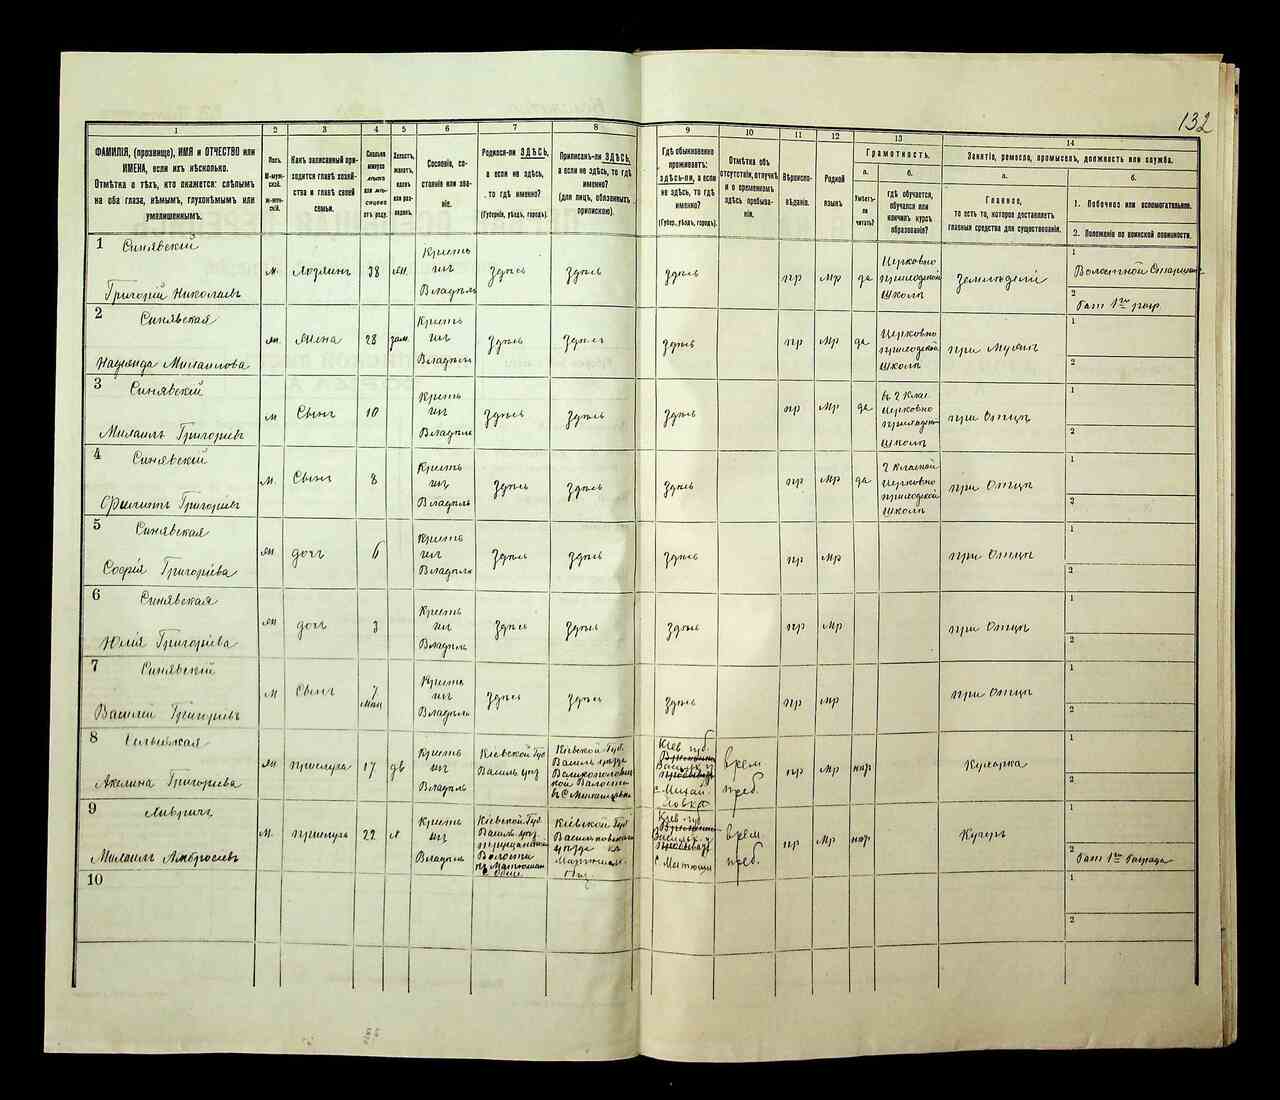 132
1
2
3
4
5
6
7
8
9
10
11
12
13
14
ФАМИЛІЯ, (прозвище), ИМЯ и ОТЧЕСТВО или
ИМЕНА, если ихъ нѣсколько.
Отмѣтка о тѣхъ, кто окажется: слѣпымъ
на оба глаза, нѣмымъ, глухонѣмымъ или
умалишеннымъ.
Полъ.
М-муж-
ской.
Ж-жен-
скій.
Какъ записанный при-
ходится главѣ хозяй-
ства и главѣ своей
семьи.
Сколько
минуло
лѣтъ
или мѣ-
сяцевъ
отъ роду.
Холостъ,
женатъ,
вдовъ
или раз-
веденъ.
Сословіе, со-
стояніе или зва-
ніе.
Родился-ли ЗДѢСЬ,
а если не здѣсь,
то гдѣ именно?
(Губернія, уѣздъ, городъ).
Приписанъ-ли ЗДѢСЬ,
а если не здѣсь, то гдѣ
именно?
(для лицъ, обязанныхъ
припискою).
Гдѣ обыкновенно
проживаетъ:
здѣсь-ли, а если
не здѣсь, то гдѣ
именно?
(Губер., уѣздъ, городъ).
Отмѣтка объ
отсутствіи, отлучкѣ
и о временномъ
здѣсь пребыва-
ніи.
Вѣроиспо-
вѣданіе.
Родной
языкъ
Грамотность.
а.
Умѣетъ-
ли
читать?
б.
гдѣ обучается,
обучался или
кончилъ курсъ
образованія?
Занятіе, ремесло, промыселъ, должность или служба.
а.
Главное,
то есть то, которое доставляетъ
главныя средства для существованія.
б.
1. Побочное или вспомогательное.
2. Положеніе по воинской повинности.
1 Синявскій
Григорій Николаевъ
м. Хозяинъ 38 жн. Крестьянинъ Владѣль здѣсь здѣсь здѣсь пр мр да Церковно приходской школѣ Земледѣлій
1 Волостной Старшина
2 Рат 1го разр
2 Синявская
Надежда Михаилова
жн. Жена 28 зам. Кресть Владѣль здѣсь здѣсь здѣсь пр мр да Церковно приходской школѣ при Мужѣ
1
2
3 Синявскій
Михаилъ Григорієвъ
м Сынъ 10 Кресть Владѣль здѣсь здѣсь здѣсь пр мр да въ 2 Клас Церковно приходск школѣ при Отцѣ
1
2
4 Синявскій
Григорієвъ
м. Сынъ 8 Кресть Владѣль здѣсь здѣсь здѣсь пр мр да 2 Класной Церковно приходской школѣ при Отцѣ
1
2
5 Синявская
Софія Григорієва
жн дочь 6 Кресть Владѣль здѣсь здѣсь здѣсь пр мр при Отцѣ
1
2
6 Синявская
Юлія Григорієва
жн дочь 3 Кресть Владѣль здѣсь здѣсь здѣсь пр мр при Отцѣ
1
2
7 Синявскій
Василій Григорієвъ
м Сынъ 7 мѣц Кресть Владѣль здѣсь здѣсь здѣсь пр мр при Отцѣ
1
2
8
Акелина Григорієва
жн прислуга 17 дѣ Кресть Владѣль Кіевской Губ Василь уѣз Кіевской Губ Василь уѣзда Кіев губ. с. Михайловка врем преб. пр мр нѣт Кухарка
1
2
9
Михаилъ Амбросієвъ
м. прислуга 22 х Кресть Владѣль Кіевской Губ Василь уѣз Волости Кіевской Губ Васильковскаго уѣзда Кіев. губ врем преб. пр мр нѣт Кучеръ
1
2 Рат 1го Разряда
10
1
2